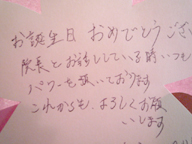 お誕生日 おめでとうござい
院長とお話ししている時いつも
パワーを頂いております
これからも、よろしくお願
いします